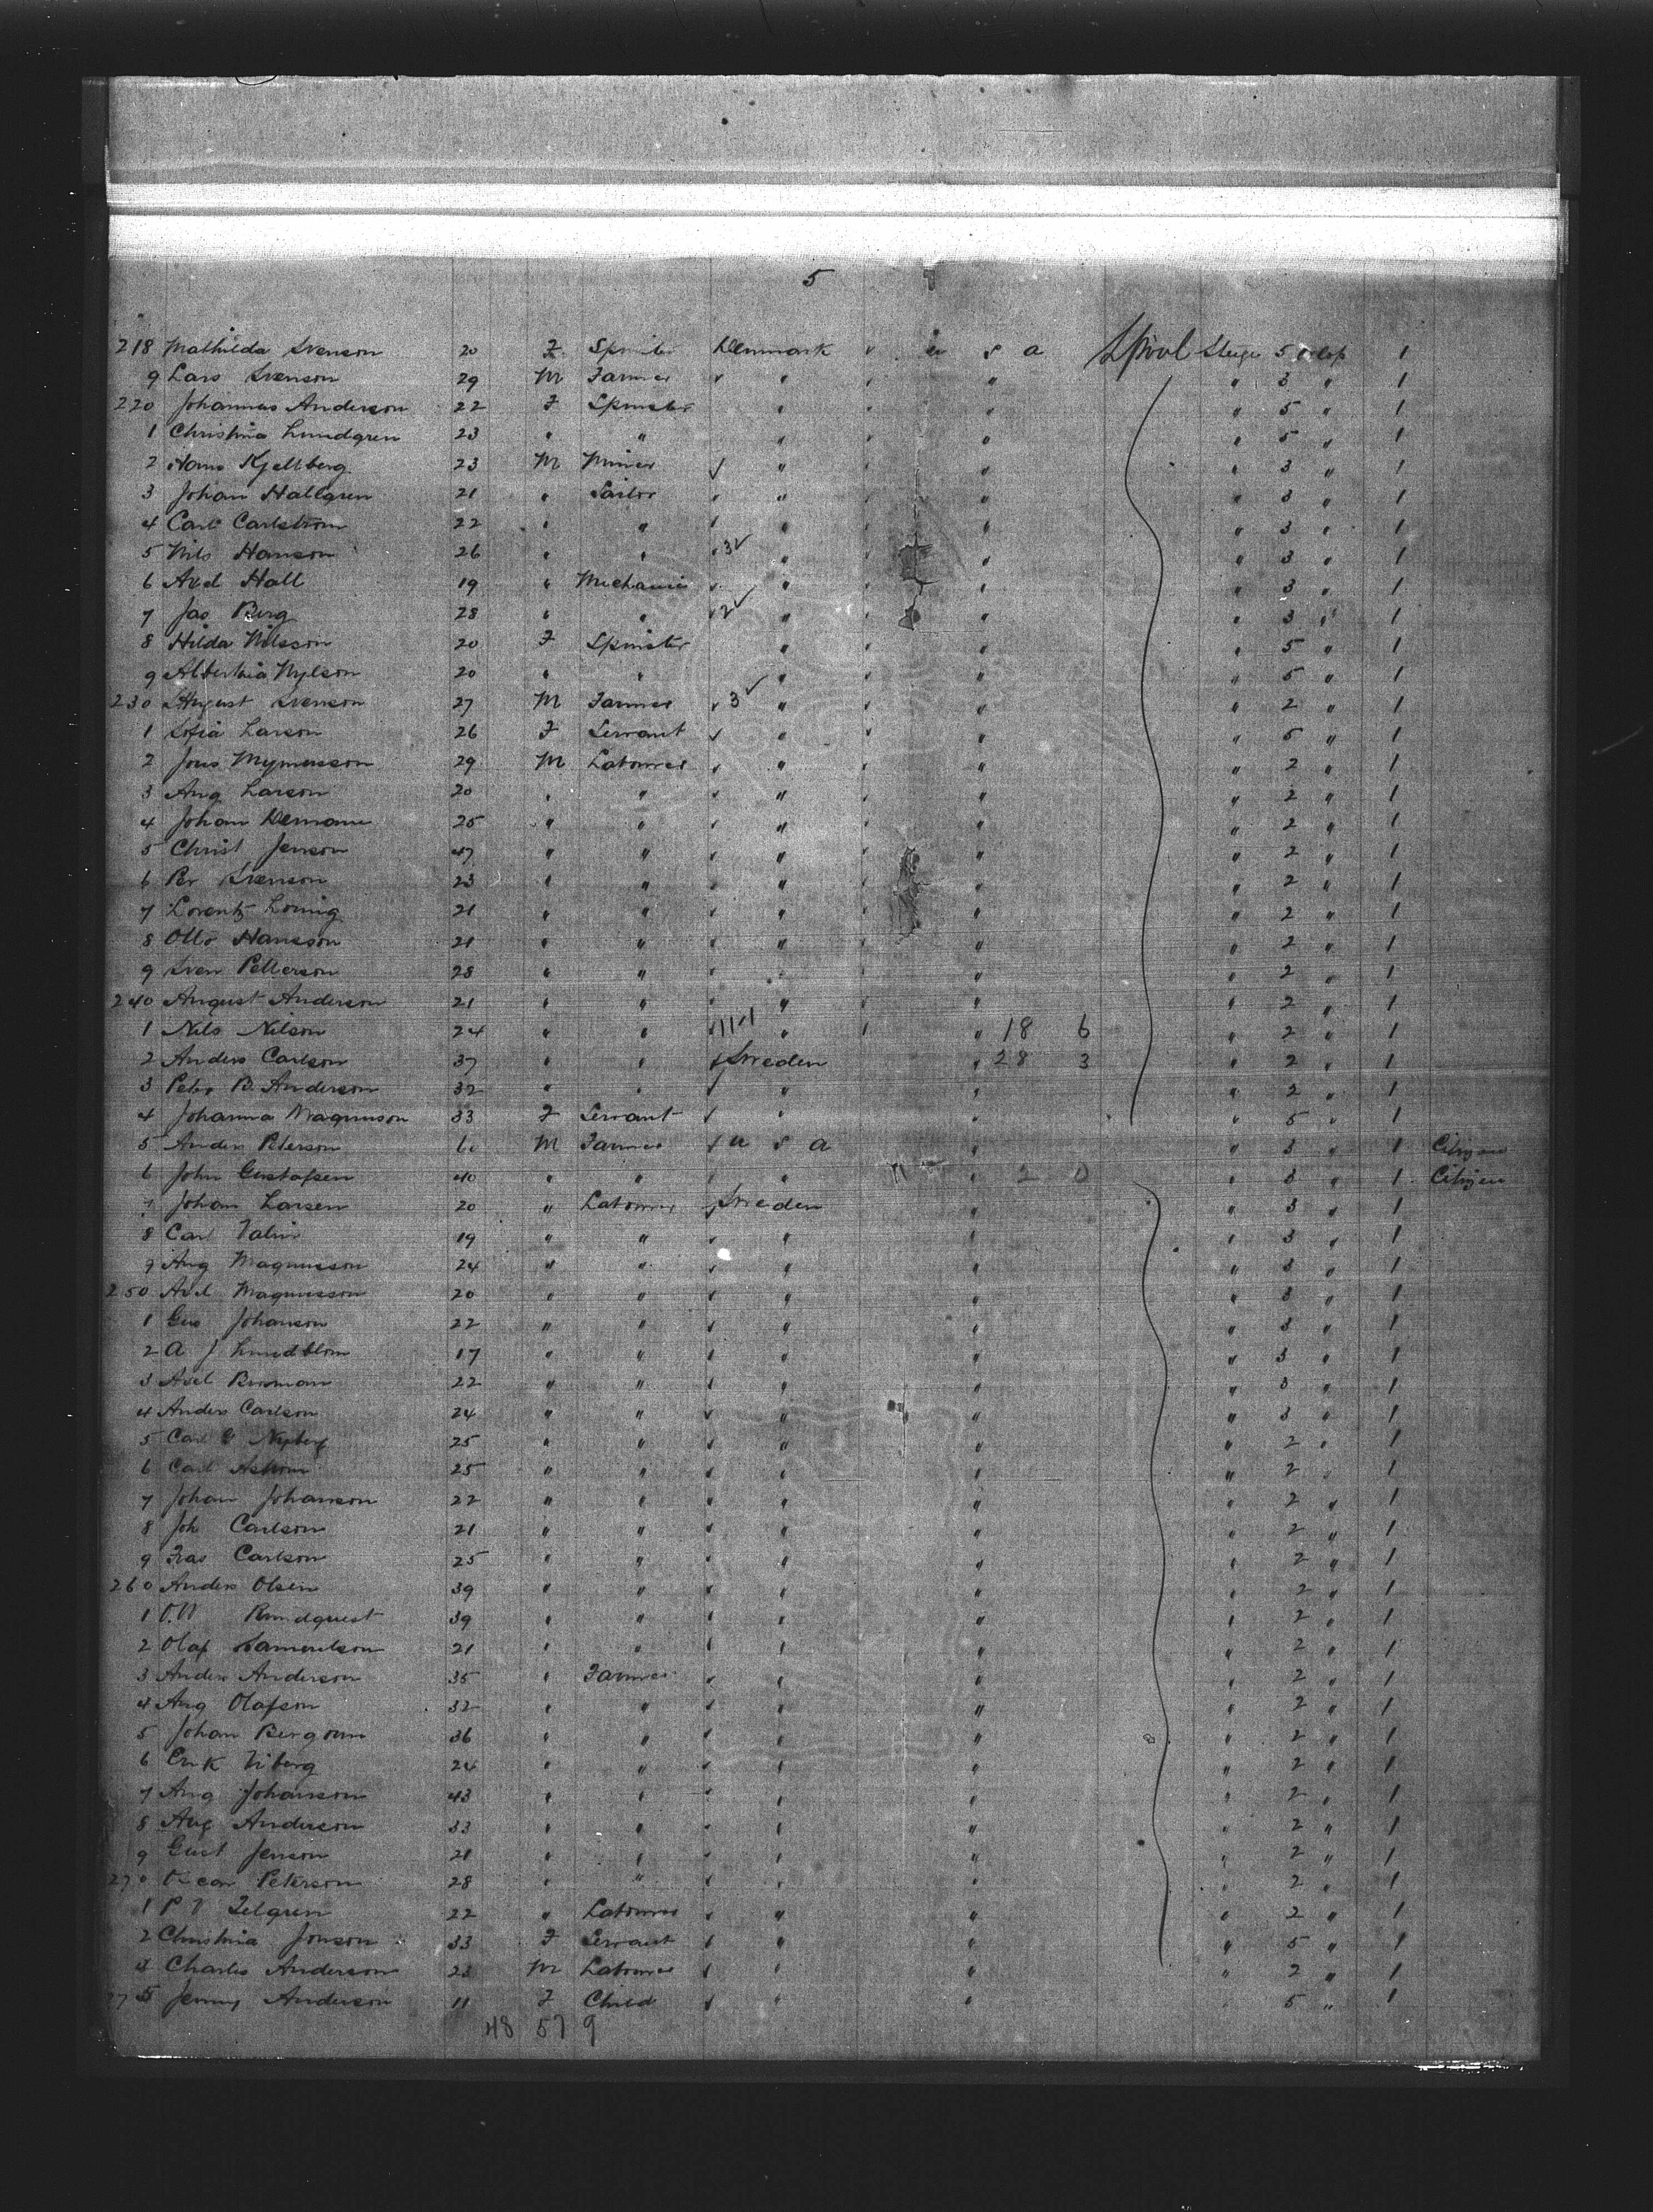 5
218 Mathilda Svenson 20 F Spinster Denmark " U S A L'pool Steerage 5 1
9 Lars Svenson 29 M Farmer " " " " 3 " 1
220 Johannas Anderson 22 F Spinster " " " " 5 " 1
1 Christina Lundgren 23 " " " " " " 5 " 1
2 Hans Kjellberg 23 M Miner " " " 3 " 1
3 Johan Hallgren 21 " Sailor " " " " " 3 " 1
4 Carl Carlstrom 22 " " " " " " 3 " 1
5 Nils Hanson 26 " " 3 " " " " 3 " 1
6 Axel Hall 19 " Mechanic " " " " 3 " 1
7 Jas Berg 28 " " 2 " " " " 3 " 1
8 Hilda Nilsson 20 F Spinster " " " " 5 " 1
9 Albertina Nylson 20 " " " " " 5 " 1
230 August Svenson 27 M Farmer 3 " " " " 2 " 1
1 Sofia Larson 26 F Servant " " " " 5 " 1
2 Jons 29 M Labourer " " " " " 2 " 1
3 Aug Larson 20 " " " " " " " 2 " 1
4 Johan 25 " " " " " " " 2 " 1
5 Christ Jenson 47 " " " " " " " 2 " 1
6 Per Svenson 23 " " " " " " 2 " 1
7 Lorentz 21 " " " " " " " 2 " 1
8 Otto Hansson 21 " " " " " " " 2 " 1
9 Sven Petterson 28 " " " " " " 2 " 1
240 August Anderson 21 " " " " " " " 2 " 1
1 Nils Nilson 24 " " 11-1 " " " 18 6 " 2 " 1
2 Anders Carlson 37 " " Sweden " 28 3 " 2 " 1
3 Peter B. Anderson 32 " " " " " 2 " 1
4 Johanna Magnusson 33 F Servant " " " 5 " 1
5 Anders Peterson M Farmer U S A " 3 " 1 Citizen
6 John Gustafsen 40 " " " " 2 0 " 3 " 1 Citizen
7 Johan Larsen 20 " Labourer Sweden " " 3 " 1
8 Carl 19 " " " " " " 3 " 1
9 Aug Magnusson 24 " " " " " " 3 " 1
250 Axel Magnusson 20 " " " " " " 3 " 1
1 Gus Johanson 22 " " " " " " 3 " 1
2 A J Lundblom 17 " " " " " " 3 " 1
3 Axel 22 " " " " " " 3 " 1
4 Anders Carlson 24 " " " " " " 3 " 1
5 Carl G Nyberg 25 " " " " " " 2 " 1
6 Carl 25 " " " " " " 2 " 1
7 Johan Johanson 22 " " " " " " 2 " 1
8 Joh Carlson 21 " " " " " " 2 " 1
9 Fras Carlson 25 " " " " " " 2 " 1
260 Anders Olsen 39 " " " " " " 2 " 1
1 Rundquest 39 " " " " " " 2 " 1
2 Olaf Samuelson 21 " " " " " " 2 " 1
3 Anders Anderson 35 " Farmer " " " " 2 " 1
4 Aug Olafson 32 " " " " " " 2 " 1
5 Johan 36 " " " " " " 2 " 1
6 Erik Viberg 24 " " " " " " 2 " 1
7 Aug Johanson 43 " " " " " " 2 " 1
8 Aug Anderson 33 " " " " " " 2 " 1
9 Gust Jenson 21 " " " " " " 2 " 1
270 Oscar Peterson 28 " " " " " " 2 " 1
1 P 22 " Labourer " " " " 2 " 1
2 Christina Jonson 33 F Servant " " " " 5 " 1
4 Charles Anderson 23 M Labourer " " " " 2 " 1
275 Jenny Anderson 11 F Child " " " 5 " 1
48 57 9